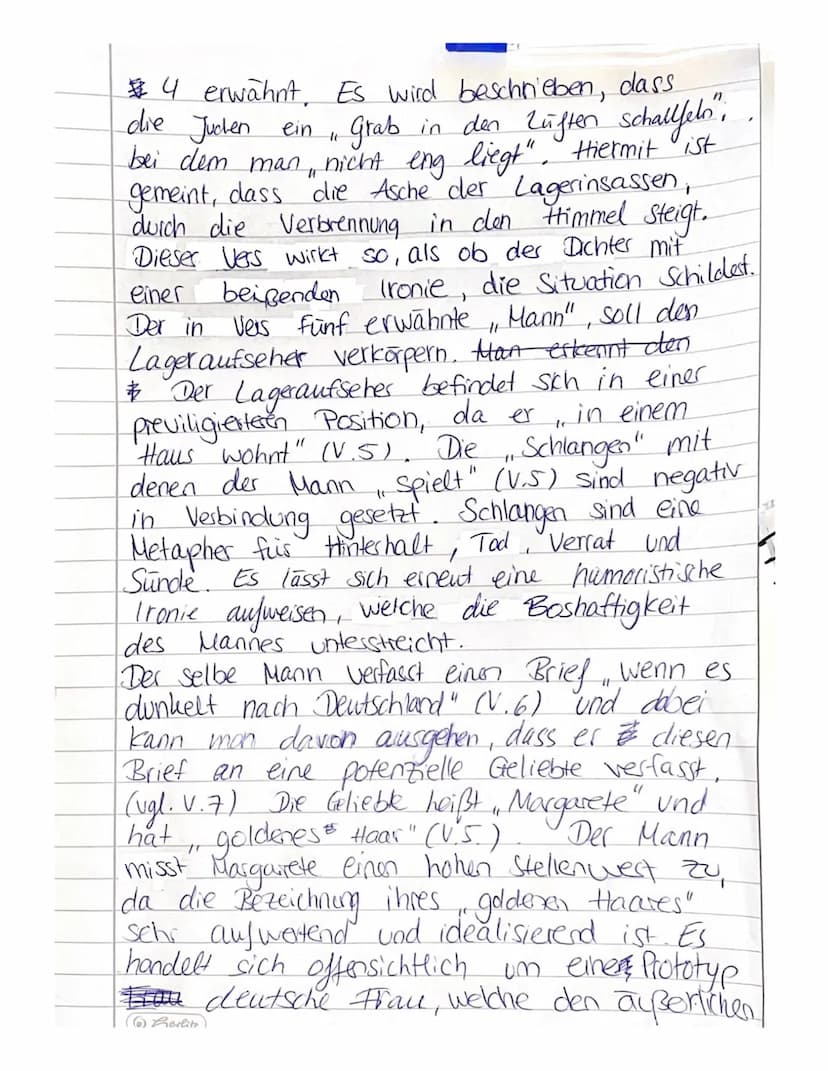 4 erwähnt. Es wird beschrieben, dass
die Juden ein „Grab in den Lüften schaufeln",
bei dem man „nicht eng liegt". Hiermit ist
gemeint, dass die Asche der Lagerinsassen,
durch die Verbrennung in den Himmel steigt.
Dieser Vers wirkt so, als ob der Dichter mit
einer beißenden Ironie, die Situation schildert.
Der in Vers fünf erwähnte „Mann", soll den
Lageraufseher verkörpern. Man erkennt den
Der Lageraufseher befindet sich in einer
previligierteren Position, da er „in einem
Haus wohnt" (V.5). Die „Schlangen" mit
denen der Mann „spielt" (V.5) sind negativ
in Verbindung gesetzt. Schlangen sind eine
Metapher für Hinterhalt, Tod, Verrat und
Sünde. Es lässt sich erneut eine humoristische
Ironie aufweisen, welche die Boshaftigkeit
des Mannes unterstreicht.
Der selbe Mann verfasst einen Brief „wenn es
dunkelt nach Deutschland" (V.6) und dabei
kann man davon ausgehen, dass er diesen
Brief an eine potenzielle Geliebte verfasst.
(vgl. V.7) Die Geliebte heißt „Margarete" und
hat „goldenes Haar" (V.5.). Der Mann
misst Margarete einen hohen Stellenwert zu,
da die Bezeichnung ihres „goldenen Haares"
sehr aufwertend und idealisierend ist. Es
handelt sich offensichtlich um eine Prototyp
Frau deutsche Frau, welche den äußerlichen
Herlitz